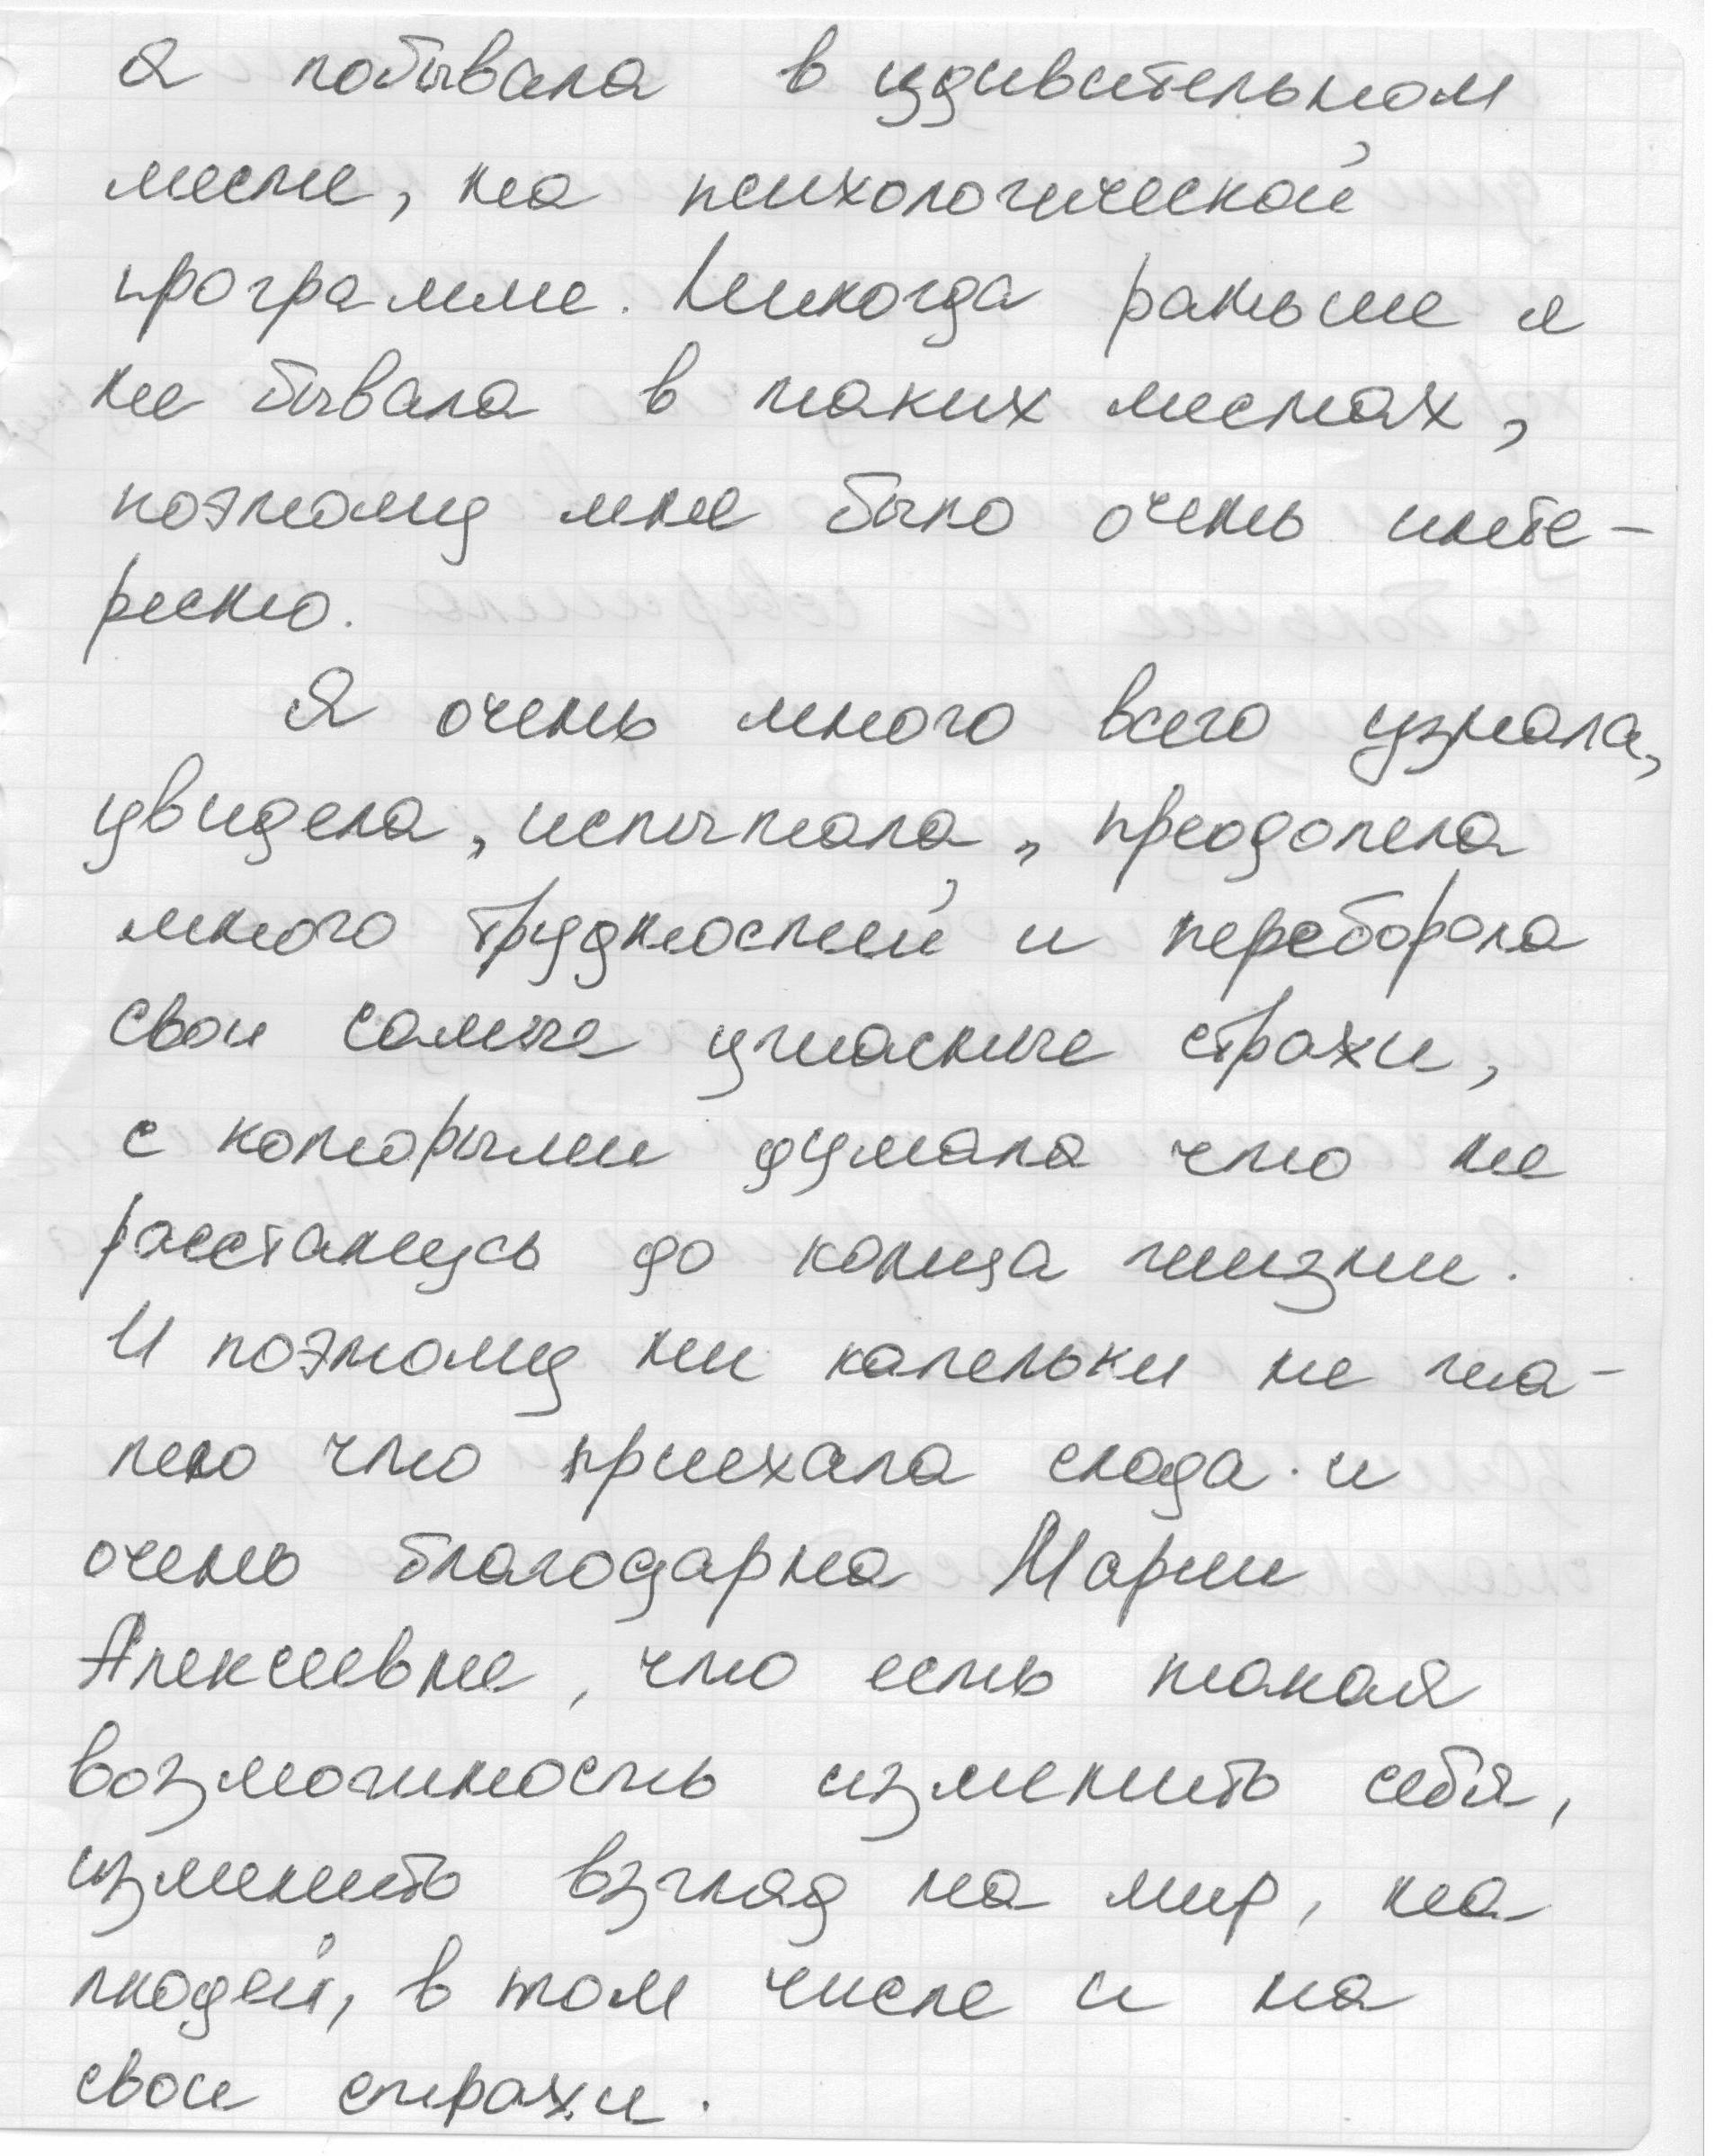 Я побывала в удивительном
месте, на психологической
программе. Никогда раньше я
не бывала в таких местах,
поэтому мне было очень инте-
ресно.
Я очень много всего узнала,
увидела, испытала, преодолела
много трудностей и переборола
свои самые ужасные страхи,
с которыми думала что не
расстанусь до конца жизни.
И поэтому ни капельки не жа-
лею что приехала сюда. и
очень благодарна Марии
Алексеевне, что есть такая
возможность изменить себя,
изменить взгляд на мир, на
людей, в том числе и на
свои страхи.